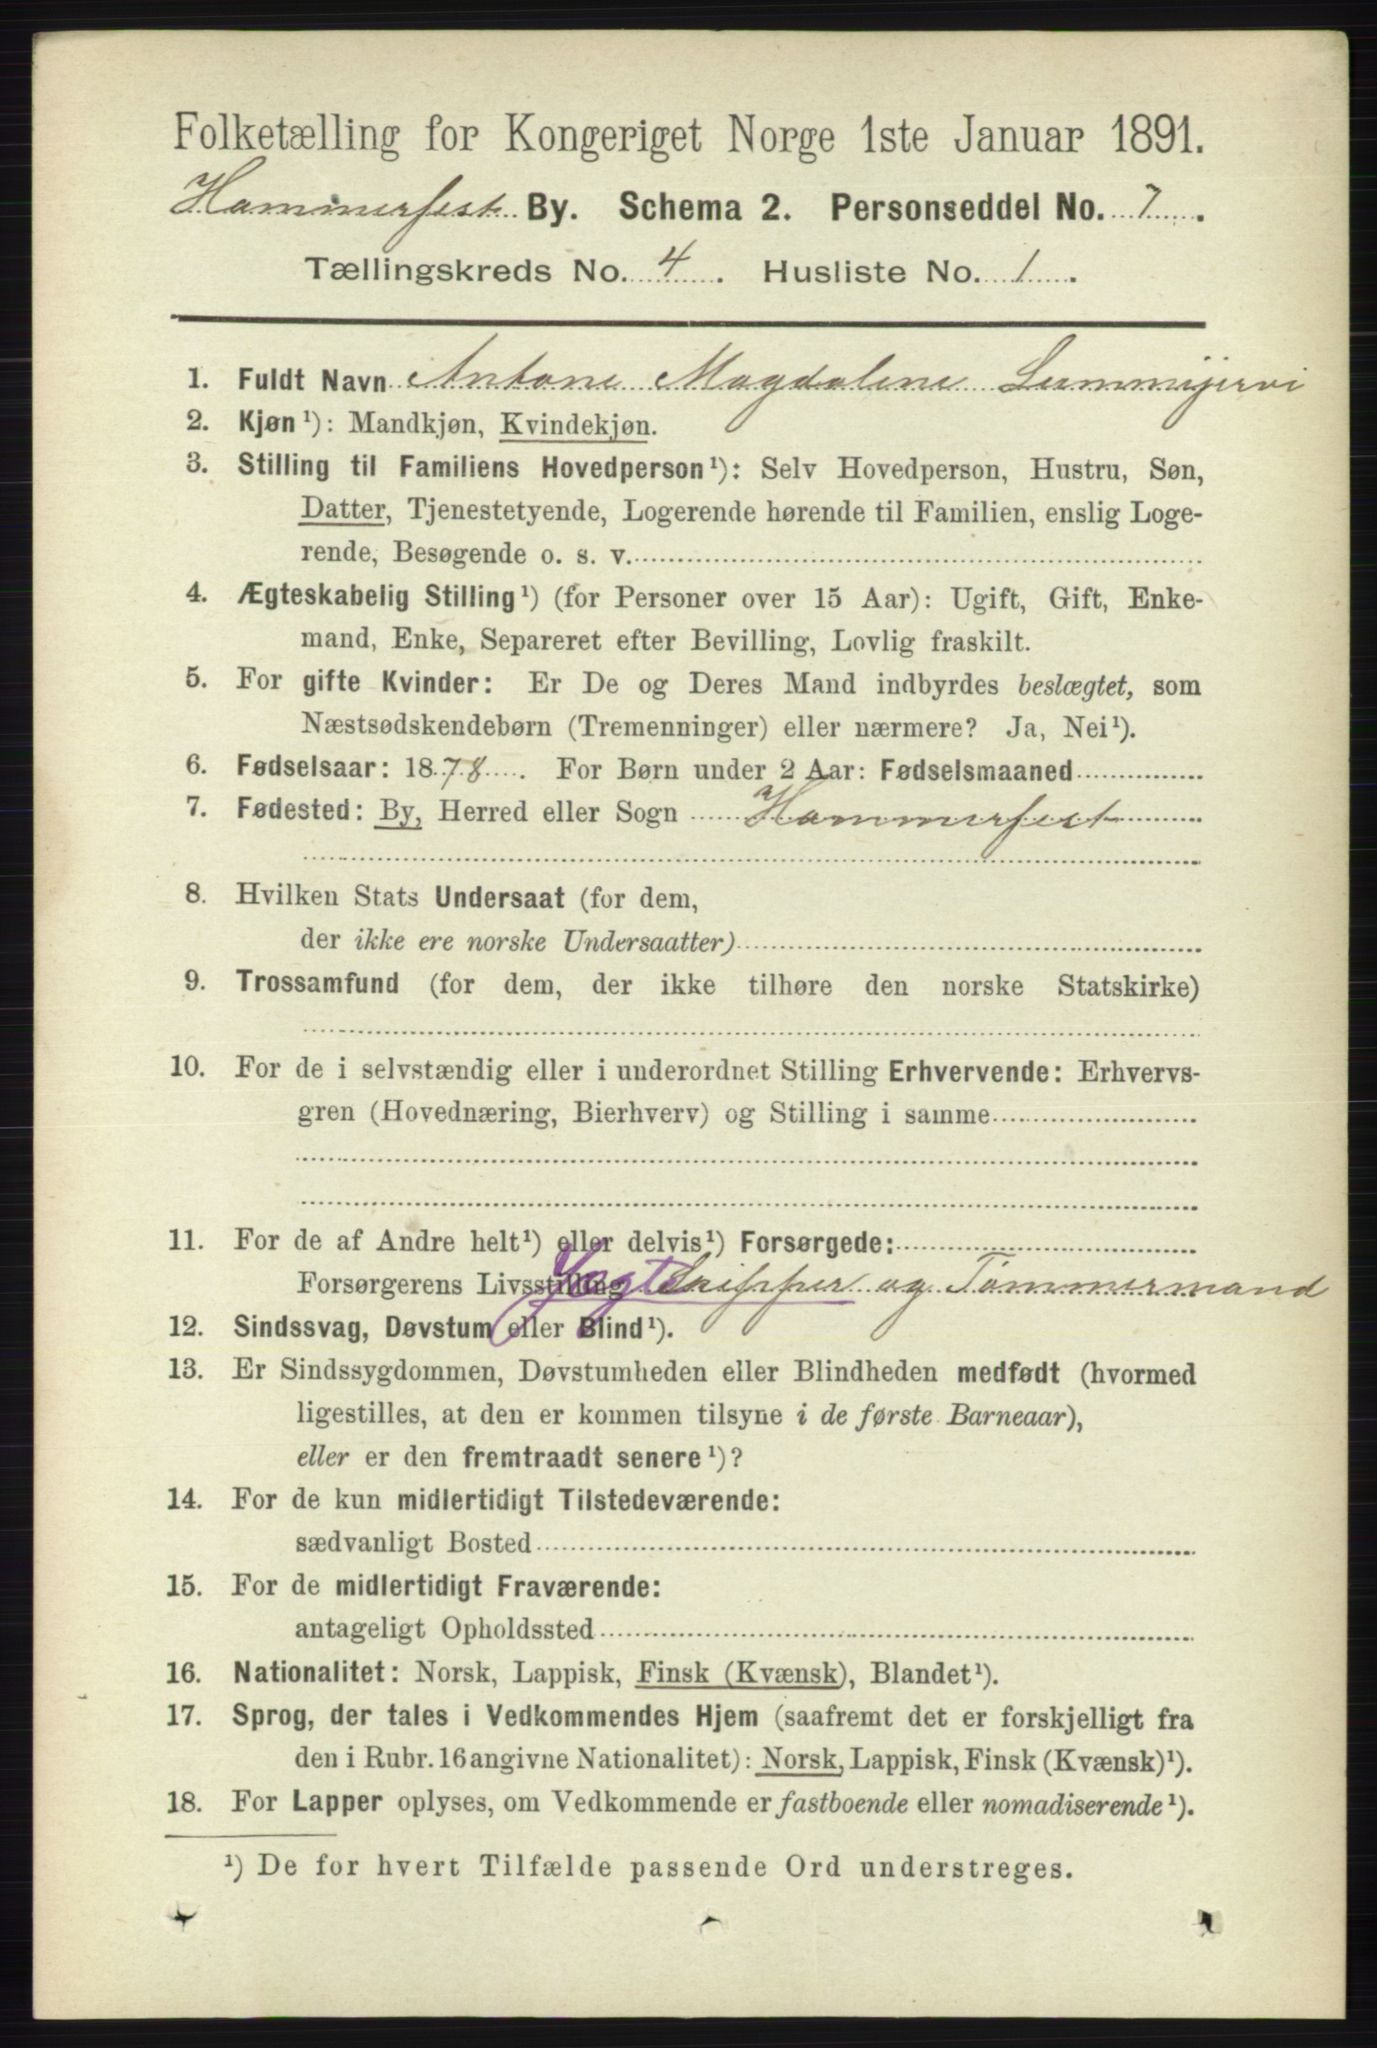 Folketælling for Kongeriget Norge 1ste Januar 1891.
Hammerfest By. Schema 2. Personseddel No. 7.
Tællingskreds No. 4. Husliste No. 1.
1. Fuldt Navn Antone Magdalene Lummijervi
2. Kjøn ¹): Mandkjøn, Kvindekjøn.
3. Stilling til Familiens Hovedperson ¹): Selv Hovedperson, Hustru, Søn,
Datter, Tjenestetyende, Logerende hørende til Familien, enslig Loge-
rende, Besøgende o. s. v.
4. Ægteskabelig Stilling ¹) (for Personer over 15 Aar): Ugift, Gift, Enke-
mand, Enke, Separeret efter Bevilling, Lovlig fraskilt.
5. For gifte Kvinder: Er De og Deres Mand indbyrdes beslægtet, som
Næstsødskendebørn (Tremenninger) eller nærmere? Ja, Nei ¹).
6. Fødselsaar: 1878. For Børn under 2 Aar: Fødselsmaaned
7. Fødested: By, Herred eller Sogn Hammerfest
8. Hvilken Stats Undersaat (for dem,
der ikke ere norske Undersaatter)
9. Trossamfund (for dem, der ikke tilhøre den norske Statskirke)
10. For de i selvstændig eller i underordnet Stilling Erhvervende: Erhvervs-
gren (Hovednæring, Bierhverv) og Stilling i samme
11. For de af Andre helt ¹) eller delvis ¹) Forsørgede:
Forsørgerens Livsstilling Jagt Skipper og Tømmermand
12. Sindssvag, Døvstum eller Blind ¹).
13. Er Sindssygdommen, Døvstumheden eller Blindheden medfødt (hvormed
ligestilles, at den er kommen tilsyne i de første Barneaar),
eller er den fremtraadt senere ¹)?
14. For de kun midlertidigt Tilstedeværende:
sædvanligt Bosted
15. For de midlertidigt Fraværende:
antageligt Opholdssted
16. Nationalitet: Norsk, Lappisk, Finsk (Kvænsk), Blandet ¹).
17. Sprog, der tales i Vedkommendes Hjem (saafremt det er forskjelligt fra
den i Rubr. 16 angivne Nationalitet): Norsk, Lappisk, Finsk (Kvænsk) ¹).
18. For Lapper oplyses, om Vedkommende er fastboende eller nomadiserende ¹).
¹) De for hvert Tilfælde passende Ord understreges.